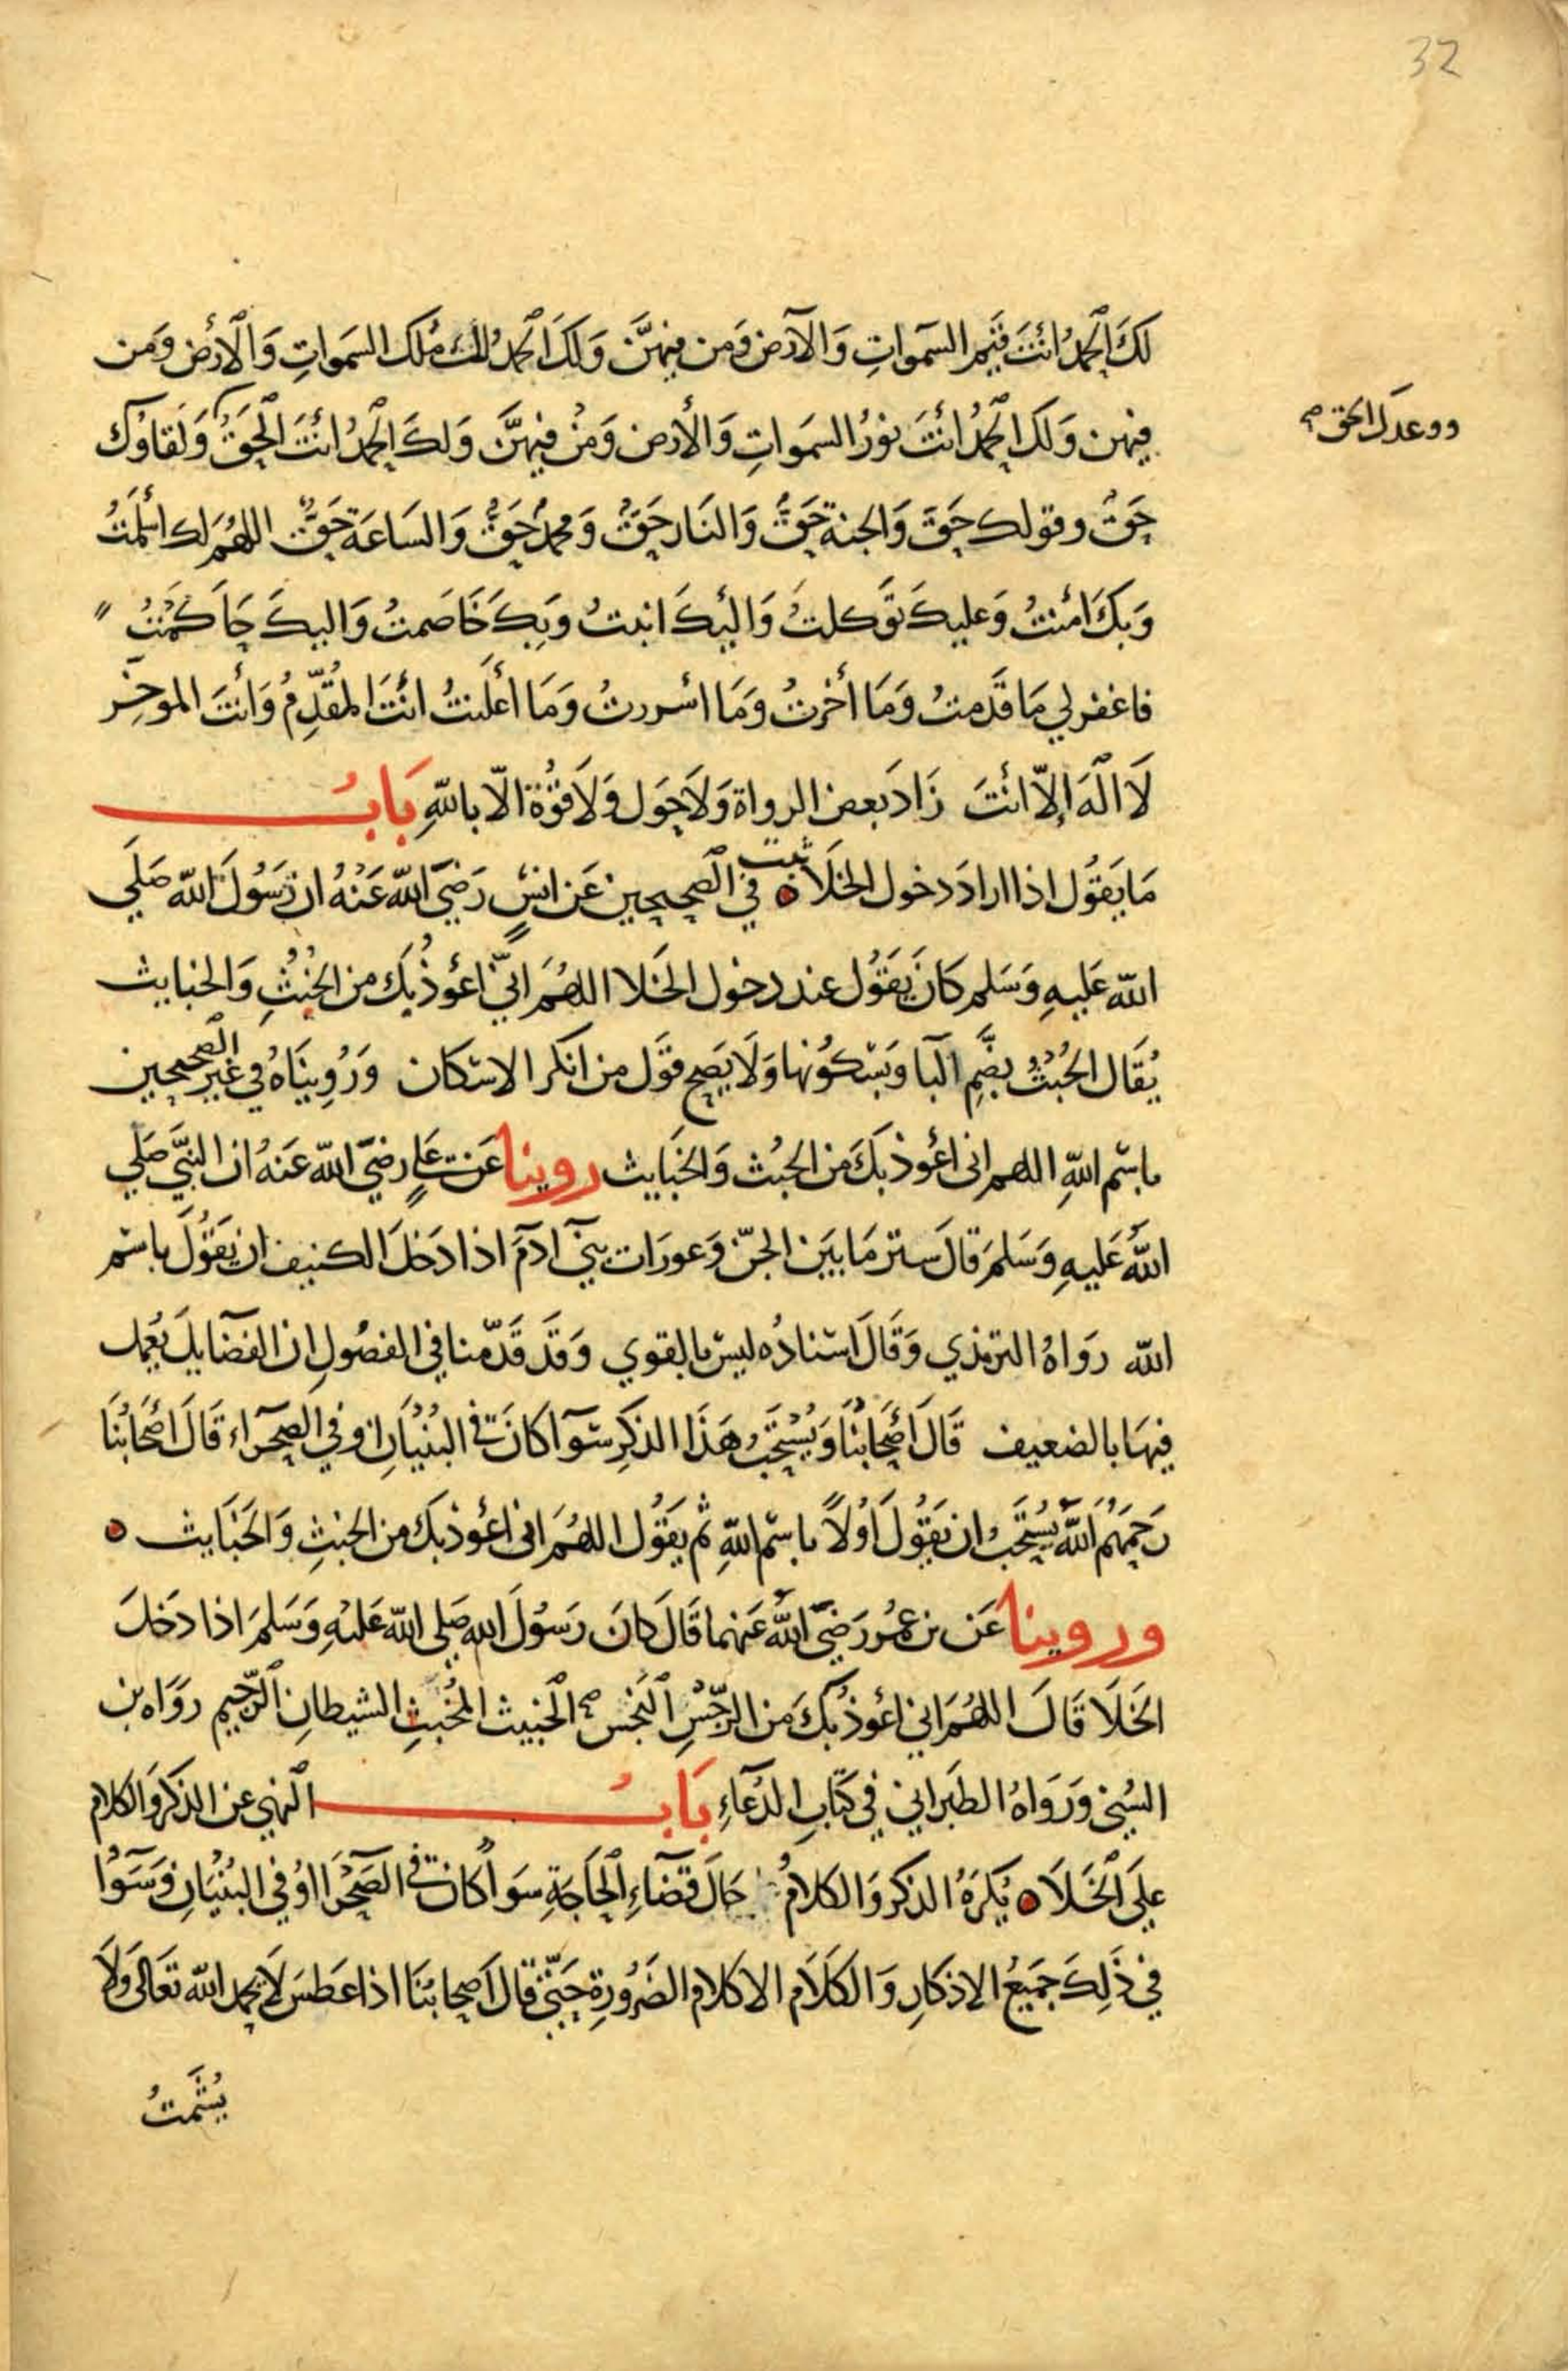 32
لَكَ الحمدُ انْتَ قَيِّم السمواتِ وَالأرض وَمن فيهنَّ وَلكَ الحمدُ لك مُلك السَمواتِ وَالأرْض وَمن
فيهن وَلكَ الحمْدُ انْتَ نورُ السَمَواتِ وَالأرض وَمَنْ فيهنَّ وَلكَ الحمْدُ انْتَ الحَقُّ وَلقَاوُك
ووعدك الحق صح
حَقٌ وقولك حَقٌ وَالجنة حَقٌ وَالنَار حَقٌ وَمحمدٌ حَقٌ وَالسَاعَة حَقٌ اللهُمَ لك أسْلَمْتُ
وَبكَ امْنتُ وَعليكَ توَكلتُ وَاليْكَ انبتُ وَبِكَ خَاصَمتُ وَاليكَ حَاكمْتُ
فاغفر لي مَا قَدمتُ وَمَا أخرتُ وَمَا اسْررتُ وَمَا أعْلَنتُ انْتَ المُقدِّمُ وَأنْتَ الموخِر
لَا الَهَ إلاّ انْتَ زَادَ بَعض الرواة وَلاَ حَول وَلاَ قوَّة الاّ باللهِ بَابُ
مَا يَقُول اذا ارادَ دخول الخلاَ ثبت في الصَحيحين عَن انسٍ رَضيَ اللهُ عَنْهُ ان رَسُولَ الله صَلي
الله عَليهِ وَسَلم كانَ يَقوُل عند دخول الخلا اللهُمَ انيّ اعوُذ بِكَ من الخبُثِ وَالخبايث
يُقَال الخُبُثُ بضَّمِ البَا وَبسْكوُنها وَلاَ يَصح قوَل من انكر الاسْكان وَرُوِينَاهُ في غَير الصحيحين
باسْم اللهِ اللهم اني اعُوذ بكَ من الخبُث وَالخبَايث روينا عَن عَليٍ رضيَ الله عَنهُ ان النبَّيَ صَلي
اللهُ عَليهِ وَسَلمَ قالَ ستر مَا بَيَن الجنّ وَعورَات بنيَ آدمَ اذا دَخلَ الكنيف ان يَقُولَ باسْم
الله روَاهُ الترمذي وَقَالَ اسْنادُه ليسَ بالقوي وَقَد قَدّمنا في الفصُولِ ان الفضَايلَ يُعمل
فيهَا بالضعيف قَالَ أصْحَابُنَا وَيُسْتحَبُ هَذَا الذكرِ سَوآ كانَ في البُنْيَانِ او في الصحرَاء قَالَ اصْحَابُنَا
رَحمَهُم اللهُ يُسْتحَبُ ان يَقُولَ اوُلاً باسْم اللهِ ثم يَقُول اللهُمَ اني اعُوذ بكَ من الخبثِ وَالخبَايث
وروينا عَن بن عمُر رَضيَ اللهُ عَنهما قَالَ كانَ رَسُولَ الله صَلي اللهُ عَليْهِ وَسَلمَ اذا دَخلَ
الخلاَ قَالَ اللهُمَ اني اعوُذ بكَ من الرّجْسِ النجس صح الخبيث المُخبثِ الشيطانِ الرّجيم روَاه بن
السُني وَرَوَاهُ الطَبَراني في كتَاب الدُعَاءِ بَابُ النهي عن الذكر وَالكلام
علىَ الخلاَ يُكرَهُ الذكر وَالكلامُ حَالَ قضَاءِ الحَاجَةِ سَوَاً كان في الصحْرَا اوْ في البُنْيَانِ وَسَوَا
في ذَلِكَ جَميعُ الاذكارِ وَالكلاَم الا كلامِ الضَرُورِة حَتيّ قالَ اصحابنَا اذا عَطسَ لاَ يحمد الله تعَالىَ وَلاَ
يُشَمتُ